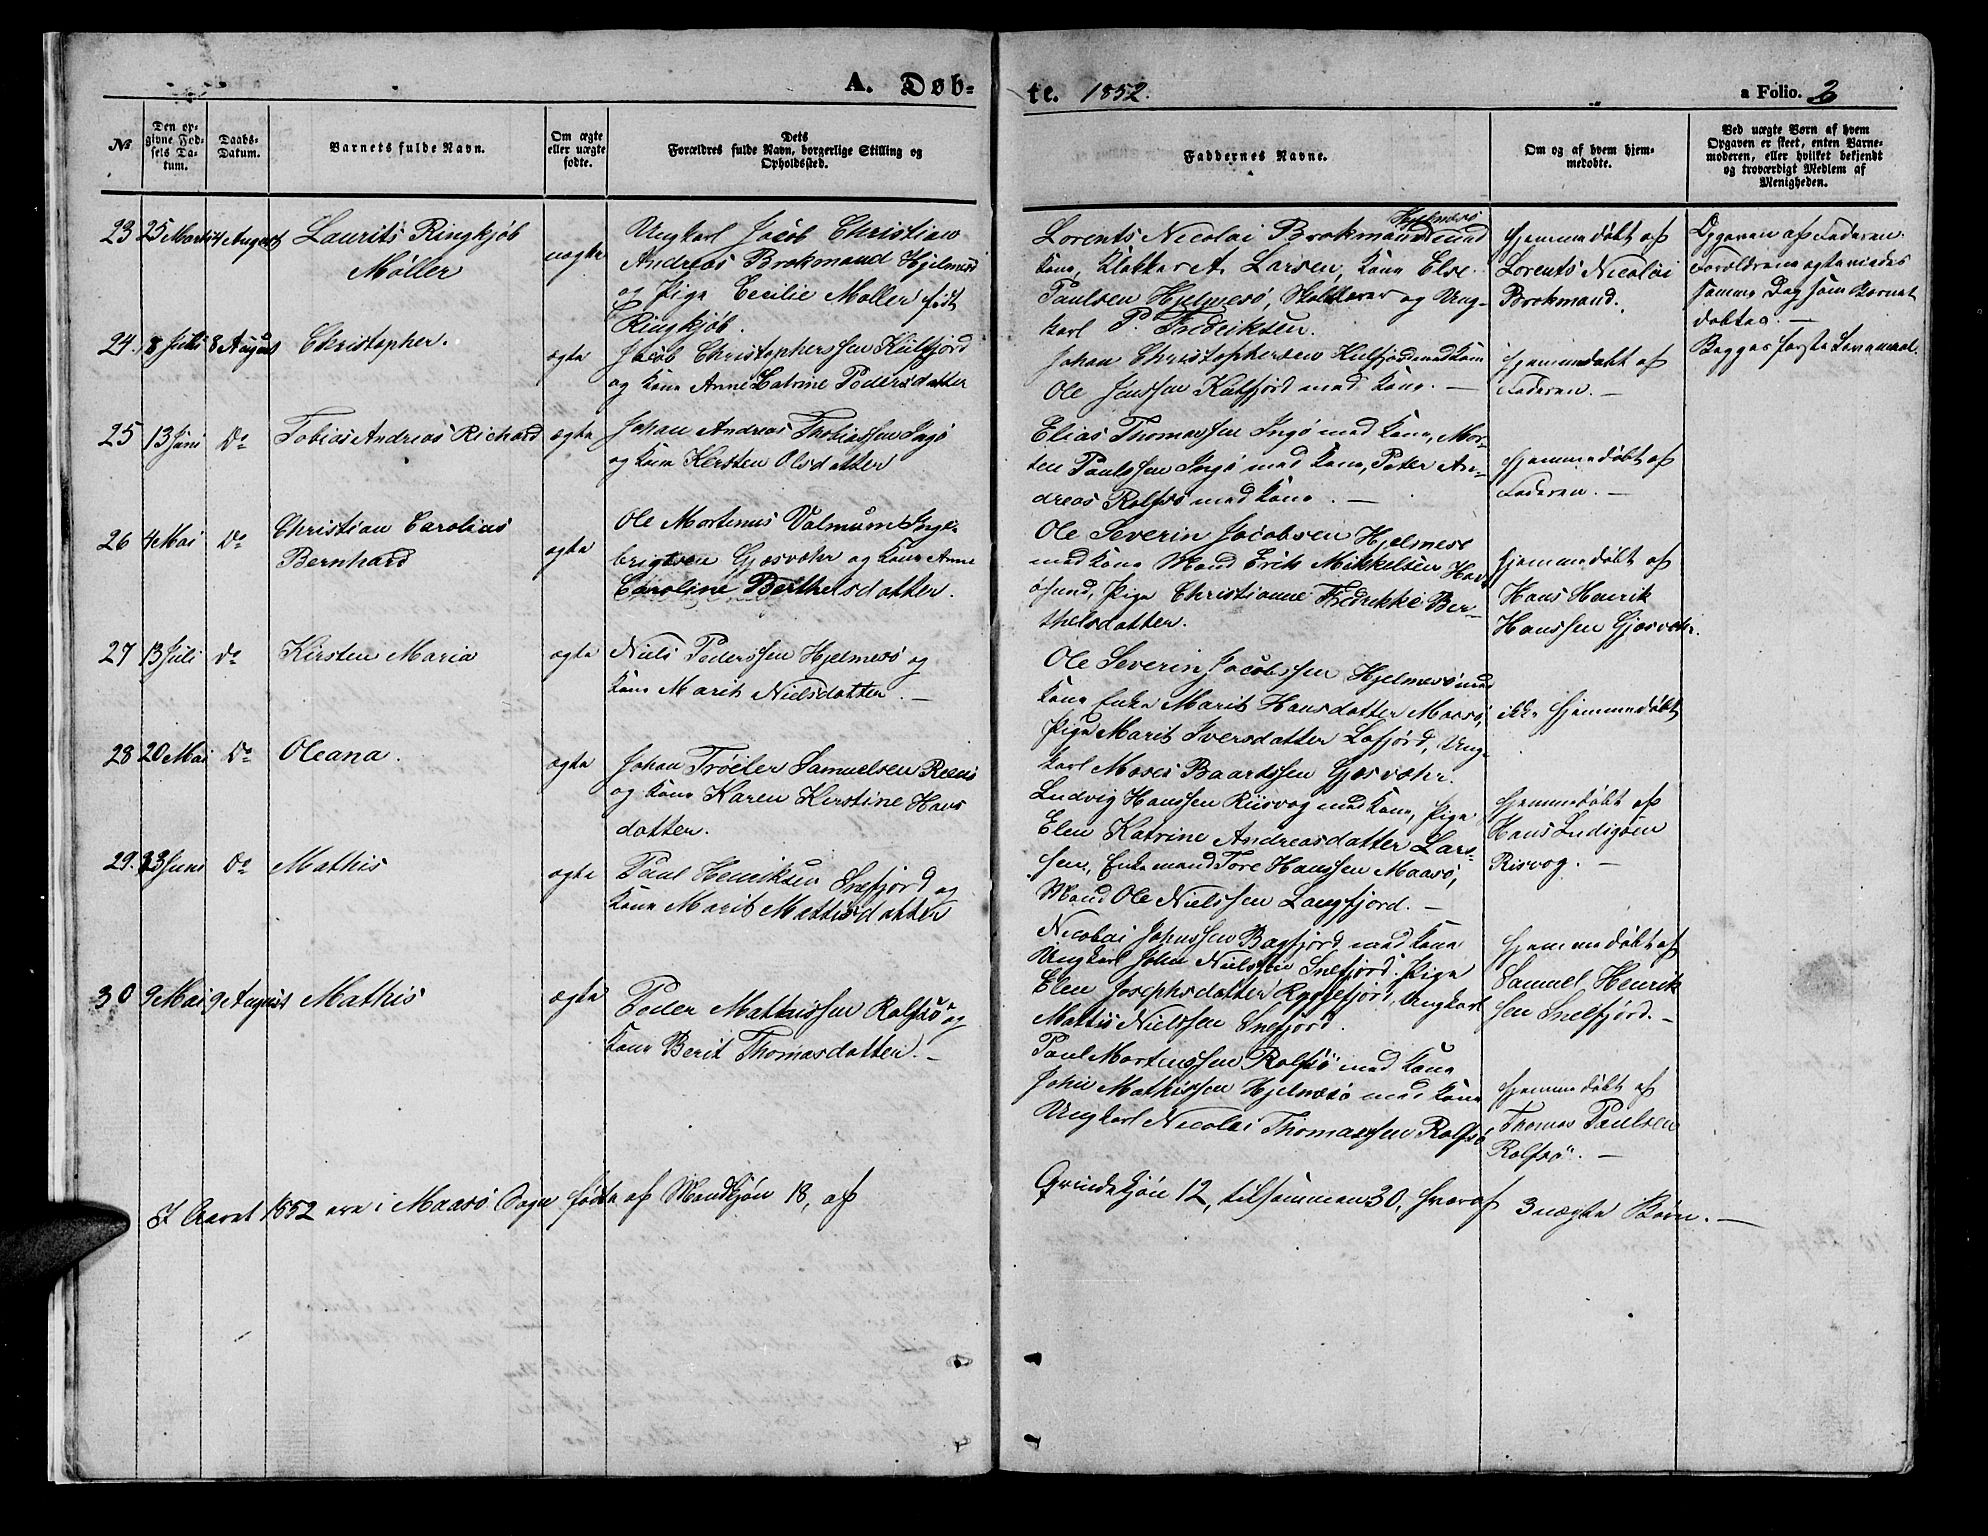 A. Døb-
te. 1852.
a Folio. 2
№
Den op-
givne Fød-
sels Da-
tum.
Daabs-
Datum.
Barnets fulde Navn.
Om ægte
eller uægte
fødte.
Dets
Forældres fulde Navn, borgerlige Stilling og
Opholdssted.
Faddernes Navne.
Om og af hvem hjem-
medøbte.
Ved uægte Børn af hvem
Opgaven er skeet, enten Barne-
moderen, eller hvilket bekjendt
og troværdigt Medlem af
Menigheden.
23 25 Marts 4 August Laurits Ringkjøb
Møller
uægte
Ungkarl Jacob Christian
Andreas Brokmand Hjelmesø
og Pige Cecilie Møller født
Ringkjøb.
Hjelmesø
Lorents Nicolai Brokmand med
Kone, Klokker A. Larsen, Kone Else
Paulsen Hjelmesø, og Ung-
karl P. Fredriksen.
hjemmedøbt af
Lorents Nicolai
Brokmand.
Opgaven af Faderen.
Forældrene ægteviedes
samme Dag som Barnet
døbtes. —
Begges første Leiermaal.
24. 8 Juli 8 August Christopher.
ægte
Jacob Christophersen Kulfjord
og Kone Anne Catrine Pedersdatter
Johan Christophersen Kulfjord med Kone
Ole Jenssen Kulfjord med Kone. —
hjemmedøbt af
Faderen. —
25 13 Juni Do Tobias Andreas Richard ægte
Johan Andreas Thobiassen Ingø
og Kone Kersten Olsdatter
Elias Thomassen Ingø med Kone, Mor-
ten Paulssen Ingø med Kone, Peter An-
dreas Rolfsø med Kone. —
hjemmedøbt af
Faderen. —
26 4 Mai Do Christian Carolius
Bernhard
ægte
Ole Mortenus Valmum Inge-
brigtsen Gjesvær og Kone Anne
Caroline Berthelsdatter.
Ole Severin Jacobsen Hjelmesø
med Kone Mand Erik Mikkelsen Hav-
øsund, Pige Christianne Fredrikke Ber-
thelsdatter.
hjemmedøbt af
Hans Henrik
Hanssen Gjesvær.
27 13 Juli do Kirsten Maria ægte
Niels Pederssen Hjelmesø og
Kone Marit Nielsdatter. —
Ole Severin Jacobssen Hjelmesø med
Kone Enke Marit Hansdatter Maasø,
Pige Marit Iversdatter Lafjord, Ung-
karl Moses Baardssen Gjesvær.
ikke hjemmedøbt
28 20 Mai Do Oleana. ægte
Johan Trøeler Samuelsen Reenes
og Kone Karen Kirstine Hans
datter.
Ludvig Hanssen Riisvog med Kone, Pige
Elen Katrine Andreasdatter Lars-
sen, Enkemand Tore Hanssen Maasø,
Mand Ole Nielssen Langfjord. —
hjemmedøbt af
Hans Ludigsen
Risvog. —
29. 23 Juni Do Mathis ægte
Paul Henriksen Snefjord og
Kone Marit Mattisdatter
Nicolai Johnssen Bagfjord med Kone
Ungkarl John Nielsen Snefjord. Pige
Elen Josephsdatter Ryggefjord, Ungkarl
Mattis Nielssen Snefjord.
hjemmedøbt af
Samuel Henrik
sen Snefjord. —
30 9 Mai 9 August Mathis ægte
Peder Mathissen Rolfsø og
Kone Berit Thomasdatter. —
Paul Mortenssen Rolfsø med Kone
John Mathissen Hjelmesø med Kone
Ungkarl Nicolai Thomassen Rolfsø
hjemmedøbt af
Thomas Paulsen
Rolfsø. —
I Aaret 1852 ere i Maasø Sogn fødte af Mandkjøn 18, af
Qvindekjøn 12, tilsammen 30, hvoraf 3 uægte Børn. —